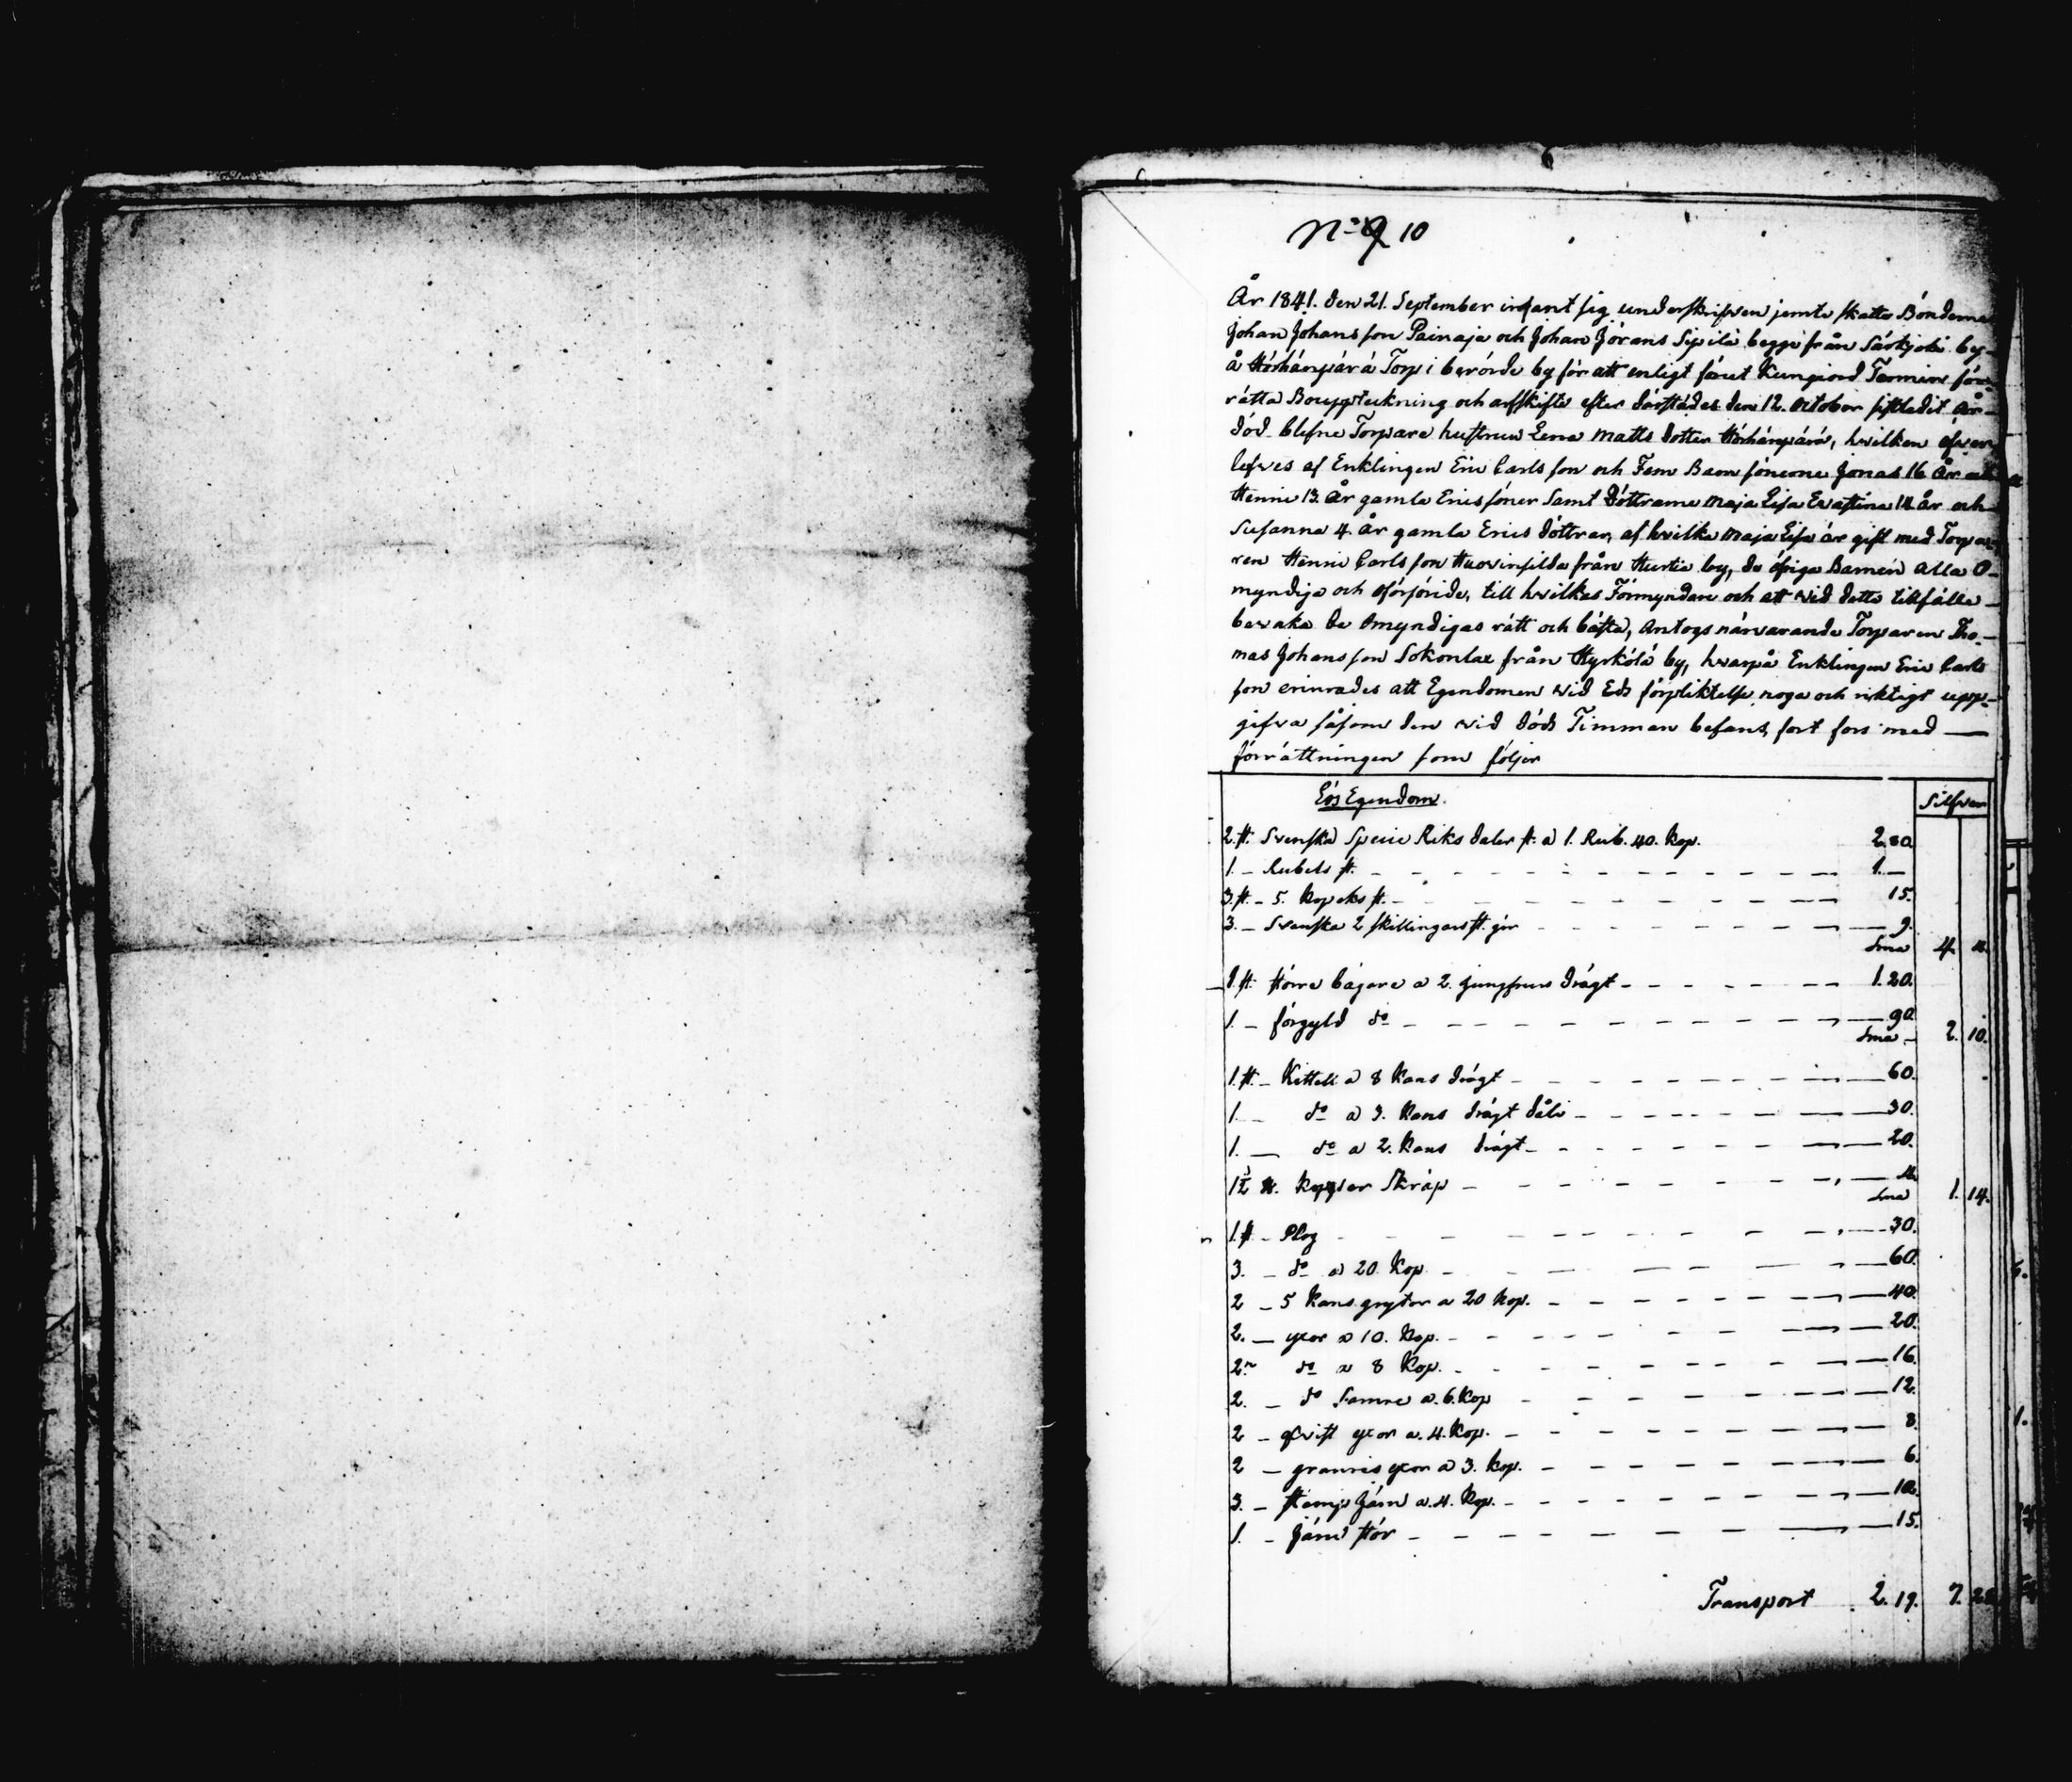 N:o 9 10
År 1841. den 21. September infant sig underskrifven jemte skatte Bönderna
Johan Johansson Painaja och Johan Jörans Sipilä begge från Särkjoki by
å Hörhänpärä Torp i berörde by för att enligt förut Kungiord Termin för-
rätta Bouppteckning och arfskifte efter därstädes den 12. October sistledit År
död blefne Torpare hustrun Lena Matts dotter Hörhänpärä, hvilken öfver
lefves af Enklingen Eric Carls son och Fem Barn sönerne Jonas 16 År och
Henric 13. År gamla Ericssöner Samt Döttrarne Maja Lisa Evastina 14 år och
Susanna 4. år gamla Erics döttrar, af hvilka Maja Lisa är gift med Torpa-
ren Henric Carls son Huovinsilda från Hurtie by, de öfriga Barnen alla O-
myndiga och oförsörjde, till hvilkas Förmyndare och att vid detta tillfälle
bevaka De Omyndigas rätt och bästa, Antogs närvarande Torparen Tho-
mas Johansson Sokonlax från Hyrkölä by, hvarpå Enklingen Eric Carls
son erinrades att Egendomen vid Eds förpliktelse noga och riktigt upp-
gifva såsom den vid döds Timman befans, fort fors med
förrättningen som följer
Lös Egendom. Silfver
2. st. Svenska Specie Riks daler st. a 1. Rub. 40. Kop. 2.80.
1. – Rubels st. 1. –
3. st. – 5. Kopeks st. 15.
3. – Svenska 2 skillingars st. gör 9.
Sma 4. 4.
1. st. Större bägare a 2. Jungfrurs drägt 1.20.
1. – förgyld do 90.
Sma – 2. 10.
1. st. – Kittell a 8 Kans drägt 60.
1. – do a 3. Kans drägt dålig 30.
1. – do a 2. Kans drägt 20.
1½ ℔. Koppar Skrap 4.
Sma 1. 14.
1. st – Plog 30.
3. – do a 20. Kop. 60.
2 – 5 Kans grytor a 20 Kop. 40.
2. – yxor a 10. Kop. 20.
2. – do a 8 Kop. 16.
2. – do Samre a. 6. Kop 12.
2 – qvist yxor a. 4. Kop. 8.
2 – granris yxor a 3. Kop. 6.
3. – Stamp Järn a. 4. Kop.
1. – Järn Stör 15.
Transport 2. 19. 7. 28